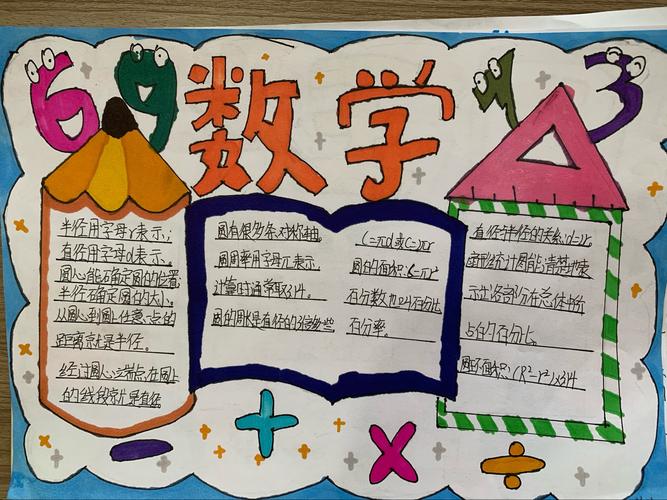 6 9 数学 1 3
半径用字母r表示;
直径用字母d表示。
圆心能确定圆的位置
半径确定圆的大小。
从圆心到圆上任意一点的
距离就是半径。
经过圆心并且在圆上
的线段就是直径
圆有很多条对称轴。
圆周率用字母π表示
计算时通常取3.14。
圆的周长是直径的3倍多些
C=πd或C=2πr
圆的面积:S=πr²
百分数也叫百分比
百分率。
直径与半径的关系:d=2r
扇形统计图能清楚地表
示出各部分在总体中所
占的百分比。
圆环面积:(R²-r²)×3.14